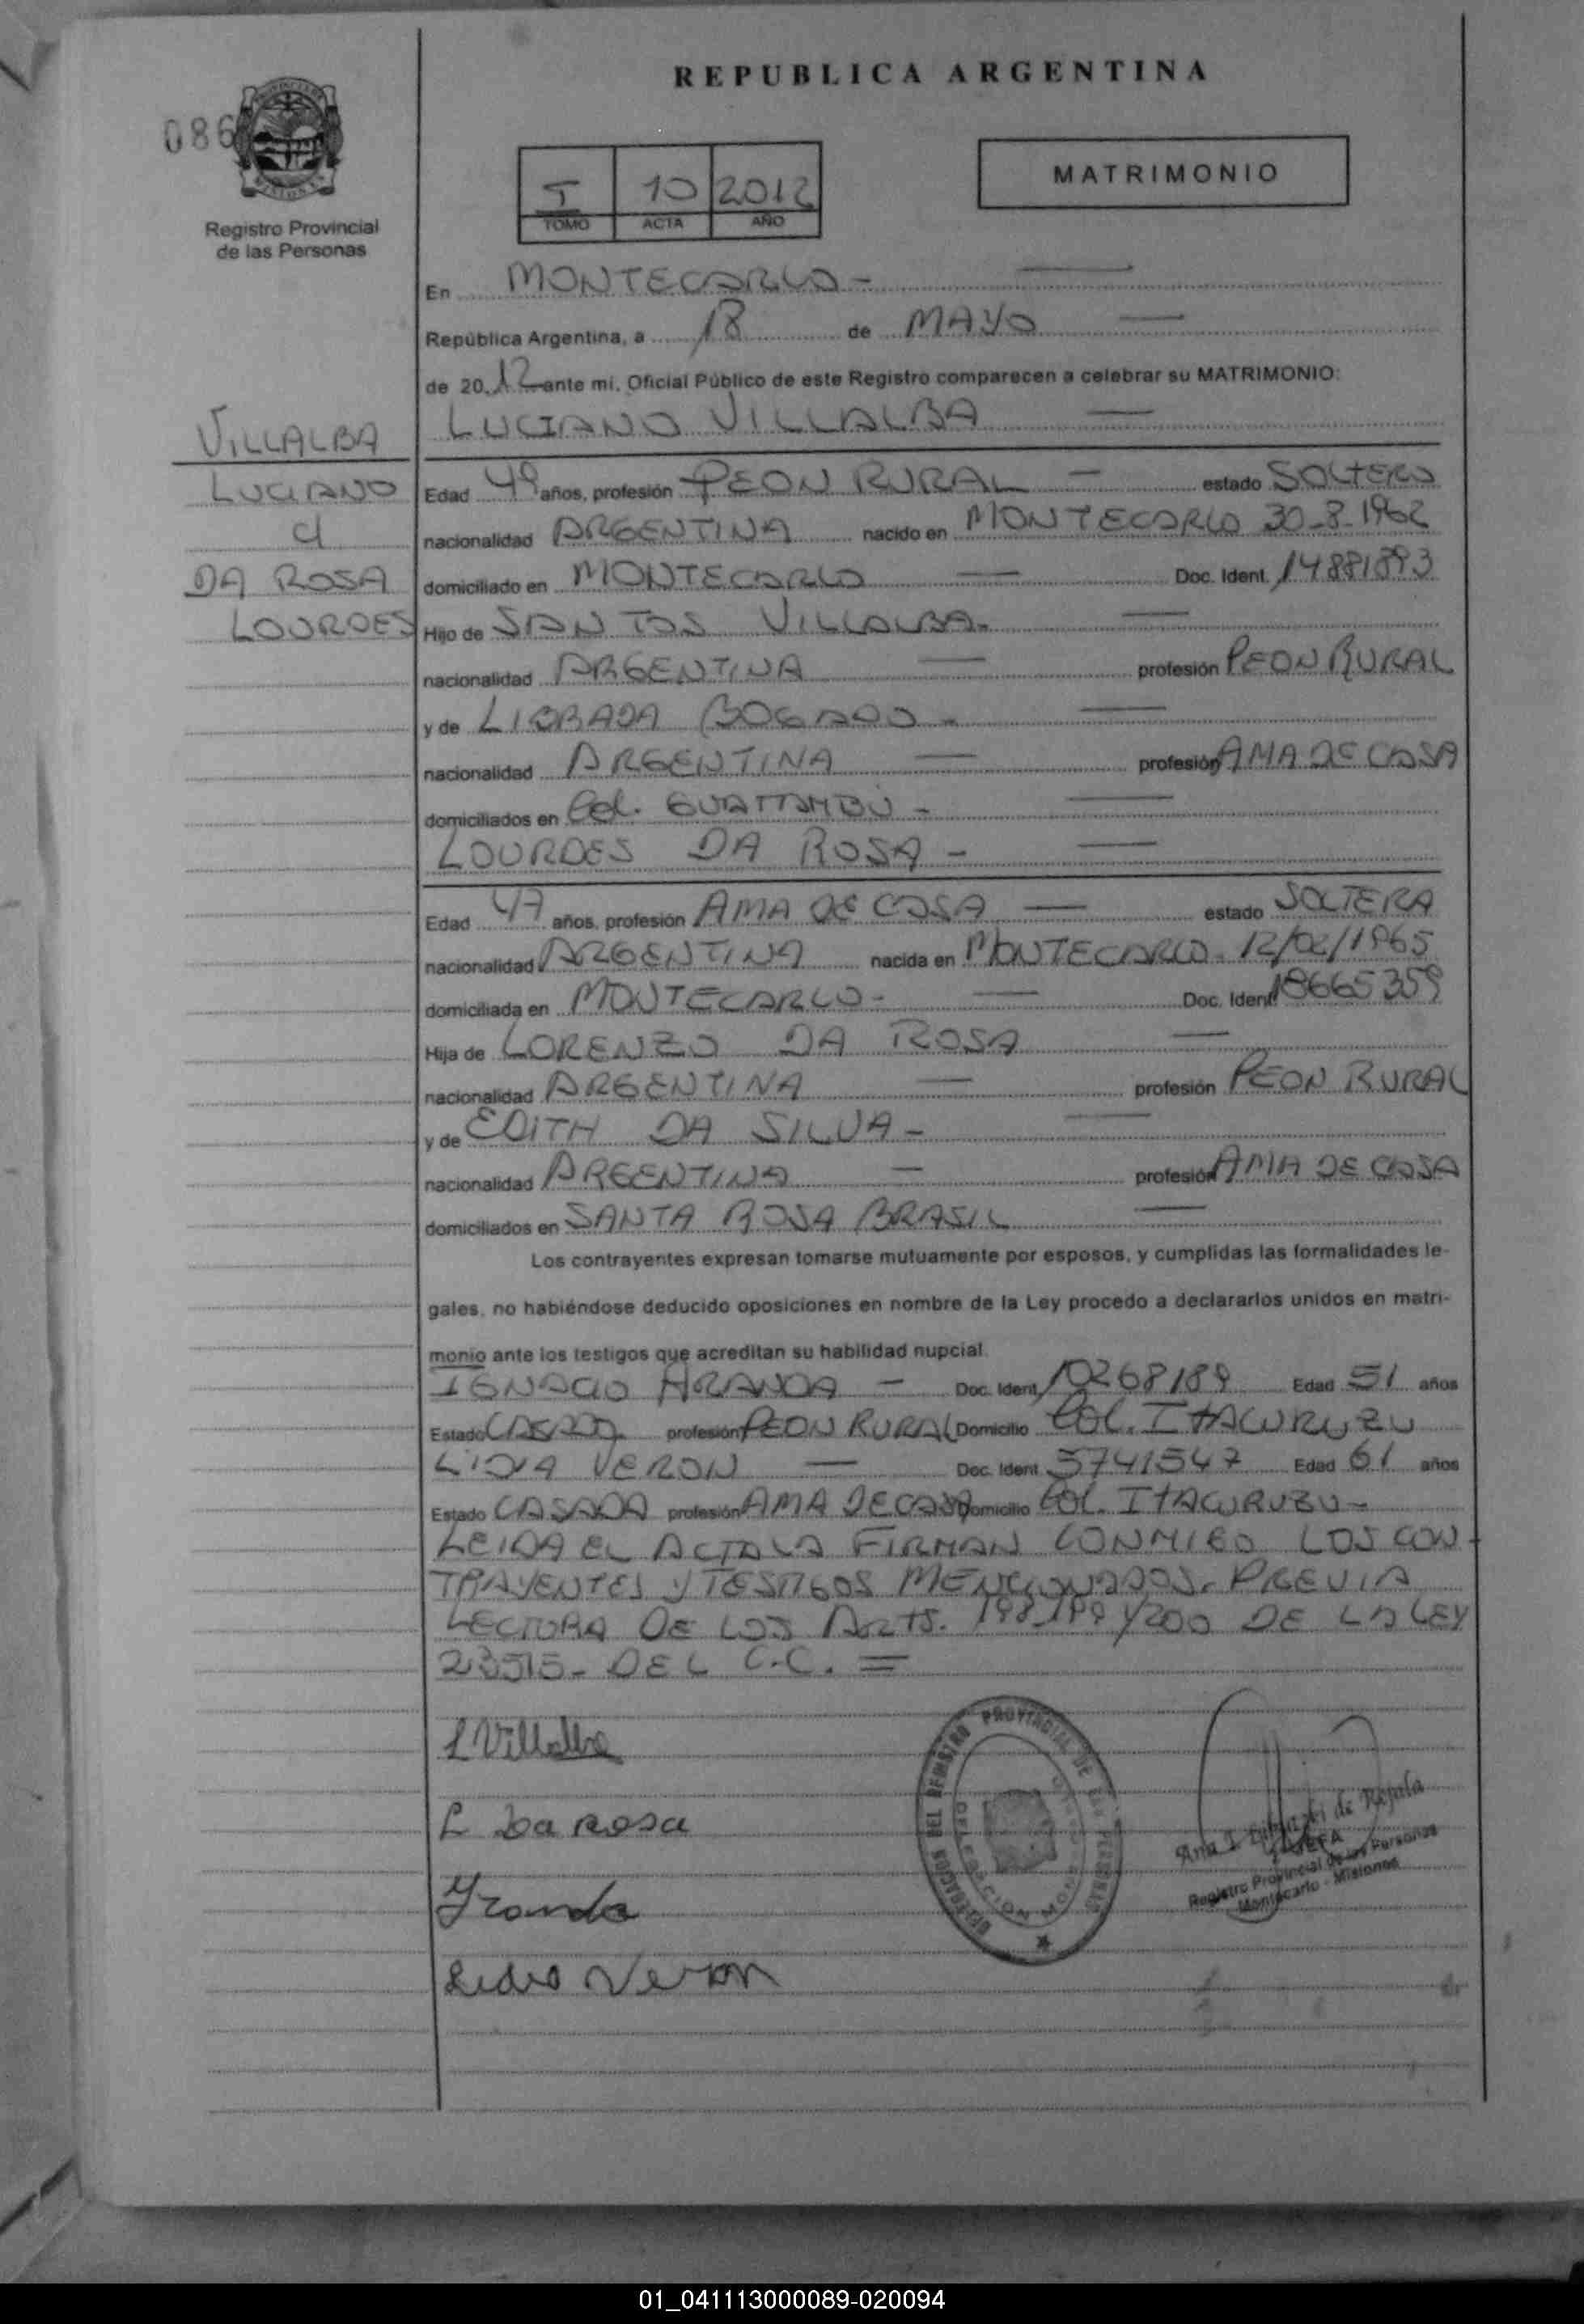 REPUBLICA ARGENTINA
086
Registro Provincial
de las Personas
I 10 2012
TOMO ACTA AÑO
MATRIMONIO
En MONTECARLO -
República Argentina, a 18 de MAYO
de 2012 ante mi, Oficial Público de este Registro comparecen a celebrar su MATRIMONIO:
LUCIANO VILLALBA
VILLALBA
LUCIANO
c/
DA ROSA
LOURDES
Edad 49 años, profesión PEON RURAL - estado SOLTERO
nacionalidad ARGENTINA nacido en MONTECARLO 30-8-1962
domiciliado en MONTECARLO Doc. Ident. 14881893
Hijo de SANTOS VILLALBA.
nacionalidad ARGENTINA profesión PEON RURAL
y de LIBRADA BOGADO -
nacionalidad ARGENTINA profesión AMA DE CASA
domiciliados en Col. GUATAMBU -
LOURDES DA ROSA -
Edad 47 años, profesión AMA DE CASA estado SOLTERA
nacionalidad ARGENTINA nacida en MONTECARLO. 12/02/1965
domiciliada en MONTECARLO - Doc. Ident 18665359
Hija de LORENZO DA ROSA
nacionalidad ARGENTINA profesión PEON RURAL
y de EDITH DA SILVA -
nacionalidad ARGENTINA profesión AMA DE CASA
domiciliados en SANTA ROSA BRASIL
Los contrayentes expresan tomarse mutuamente por esposos, y cumplidas las formalidades le-
gales, no habiéndose deducido oposiciones en nombre de la Ley procedo a declararlos unidos en matri-
monio ante los testigos que acreditan su habilidad nupcial.
IGNACIO ARANDA - Doc. Ident. 10268189 Edad 51 años
Estado CASADO profesión PEON RURAL Domicilio Col. ITACURUZU
LIDIA VERON - Doc. Ident. 5741547 Edad 61 años
Estado CASADA profesión AMA DE CASA Domicilio Col. ITACURUZU -
LEIDA EL ACTA LA FIRMAN CONMIGO LOS CON-
TRAYENTES Y TESTIGOS MENCIONADOS. PREVIA
LECTURA DE LOS ARTS. 198, 199 Y 200 DE LA LEY
23515- DEL C.C. =
L Villalba
L Da Rosa
Veron
Ana I de Rejala
JEFA
Registro Provincial de las Personas
Montecarlo - Misiones
DEL REGISTRO PROVINCIAL DE LAS PERSONAS
01_041113000089-020094